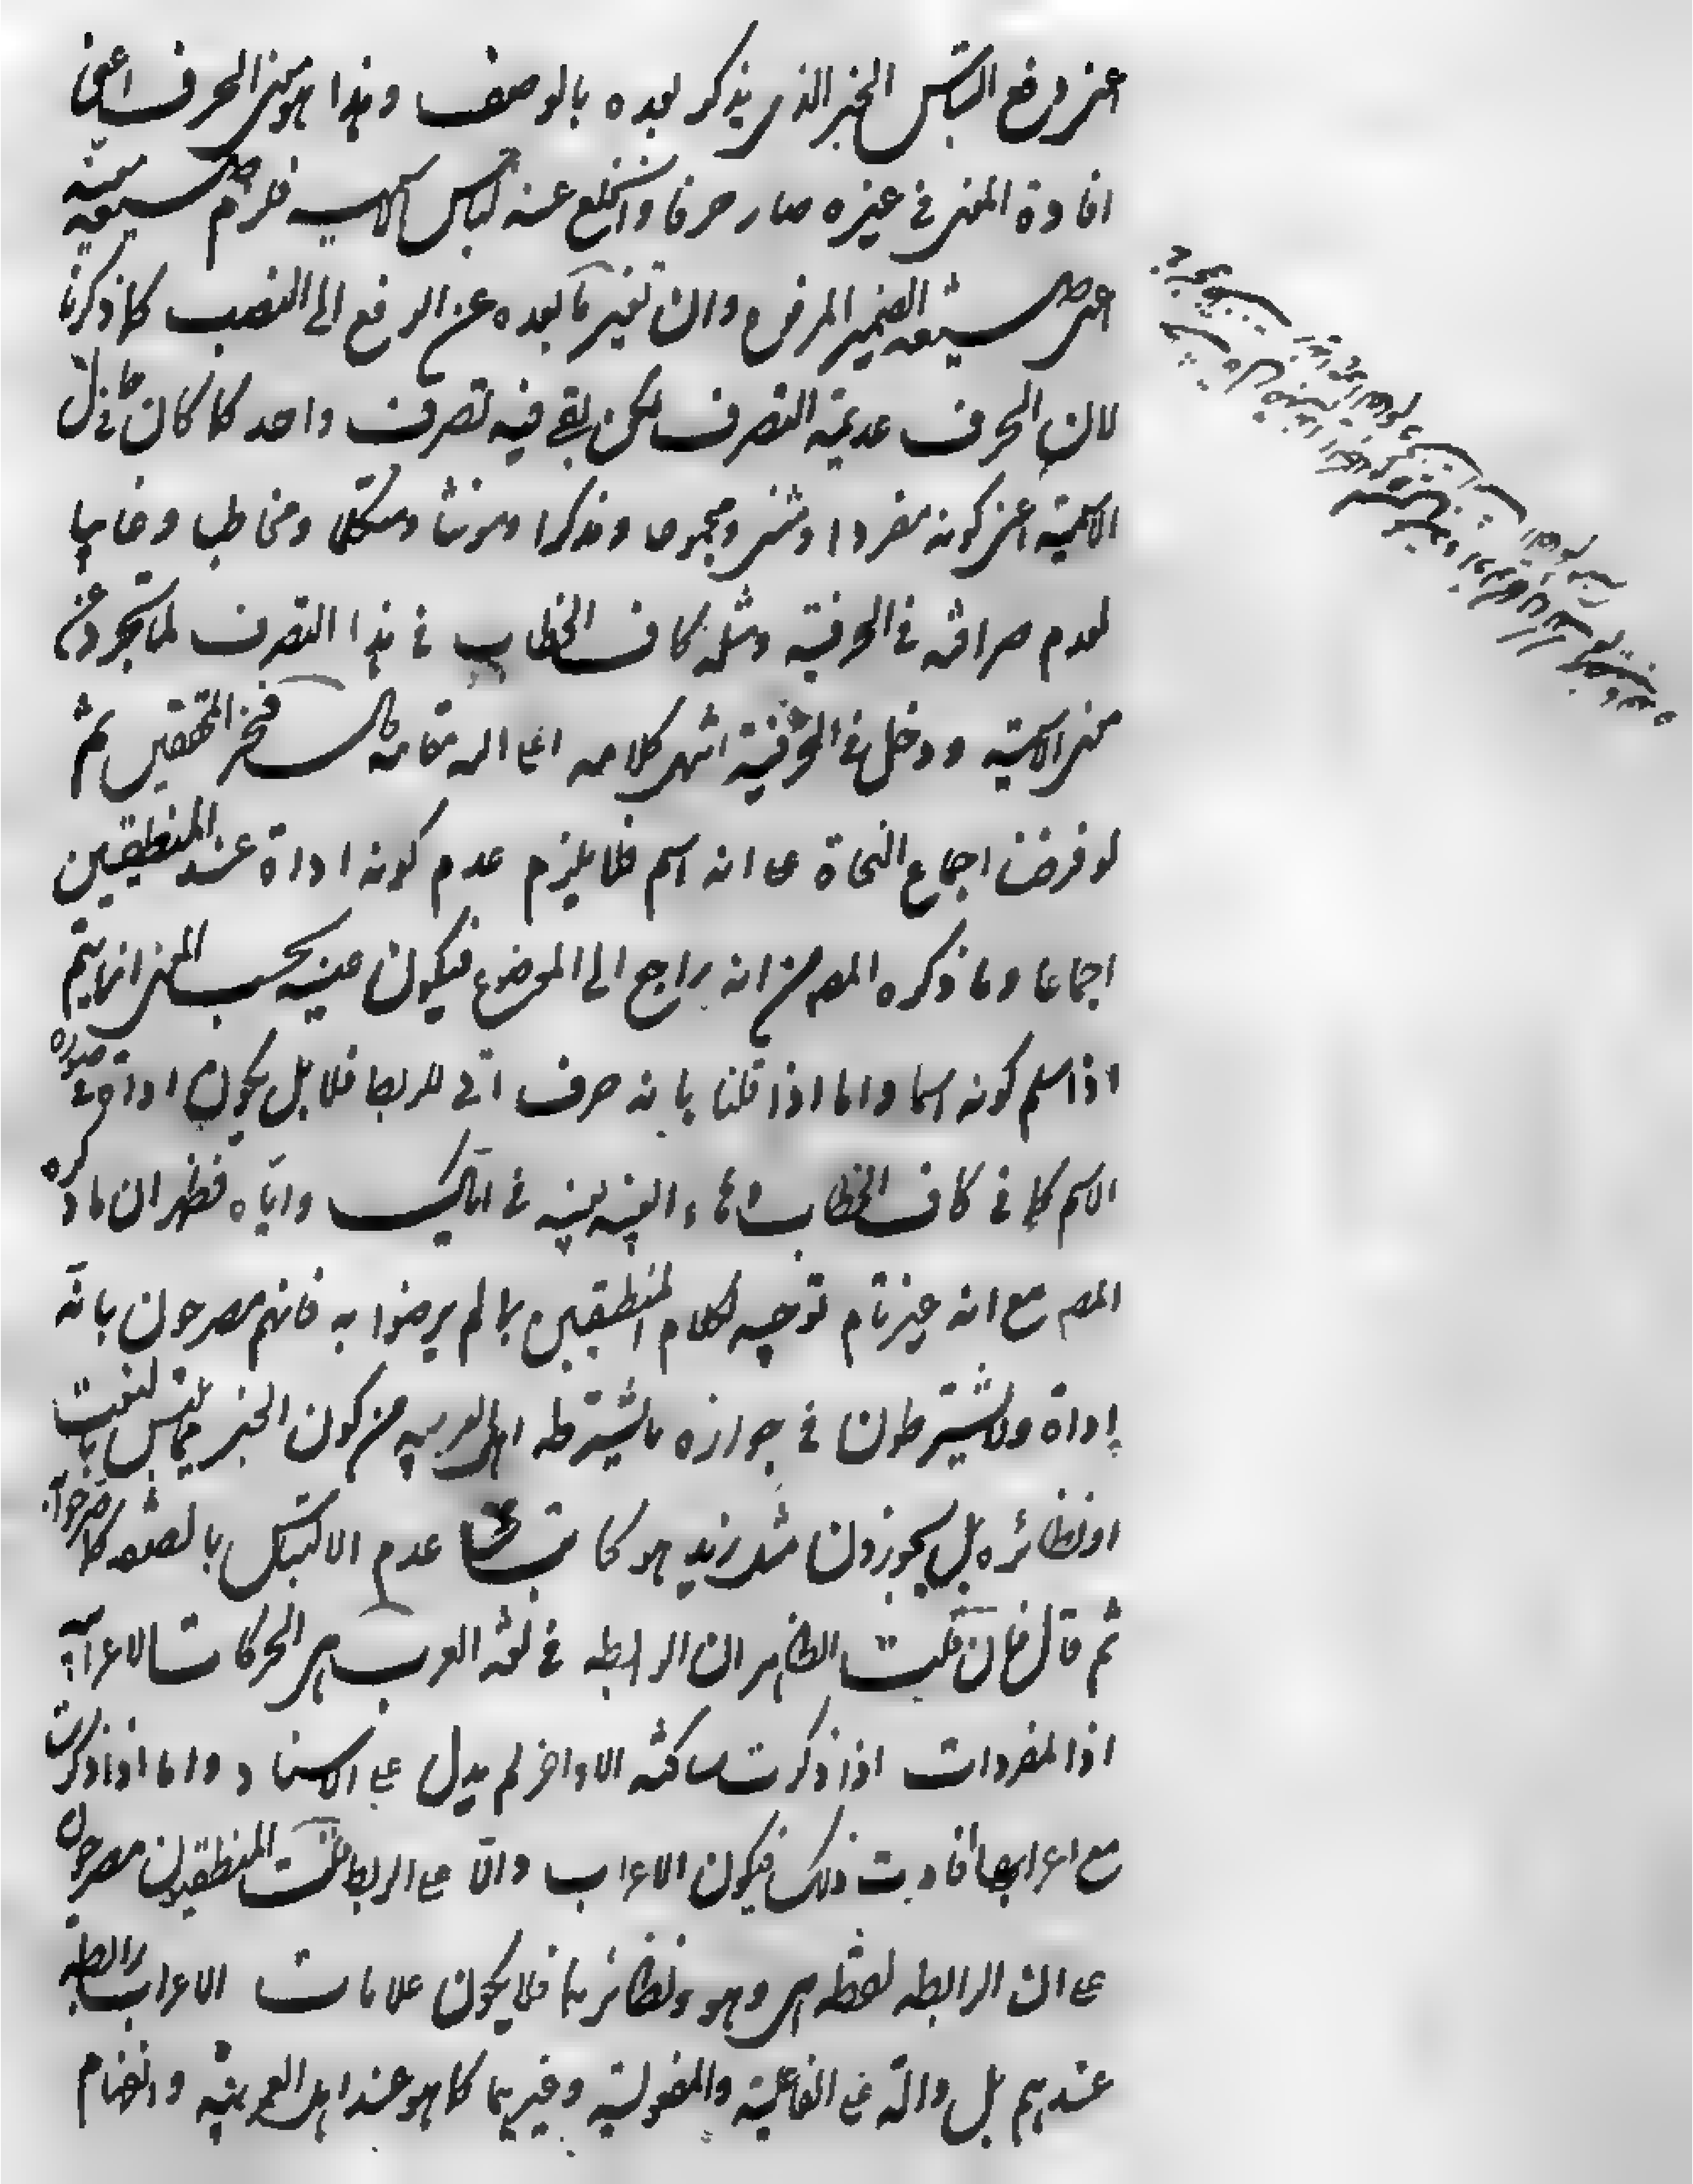 اعنى رفع التباس الخبر الذى يذكر بعده بالوصف وهذا هو معنى الحرف اعنى
افادة المعنى فى غيره صار حرفا وانخلع عنه لباس الاسمية فلزم صيغة معينة
اعنى صيغة الضمير المرفوع وان تغير ما بعده عن الرفع الى النصب كما ذكرنا
لان الحرف عديمة التصرف لكن بقى فيه تصرف واحد كما كان فى حال
الاسمية اعنى كونه مفردا ومثنى ومجموعا ومذكرا ومونثا ومتكلما ومخاطبا وغايبا
لعدم صرافته فى الحرفية ومثله كاف الخطاب فى هذا التصرف لما تجرد عن
معنى الاسمية ودخل فى الحرفية انتهى كلامه اعلى الله مقامه قال فخر المحققين ثم
لو فرضنا اجماع النحاة على انه اسم فلا يلزم عدم كونه اداة عند المنطقيين
اجماعا وما ذكره المصـ من انه راجع الى الموضوع فيكون عينه بحسب المعنى انما يتم
اذا سلم كونه اسما واما اذا قلنا بانه حرف اتى للربط فلا بل يكون اداة فى صورة
الاسم كما فى كاف الخطاب وهاء الغيبة فى اياك واياه فظهر ان ما ذكره
المصـ مع انه غير تام توجيه لكلام المنطقيين بما لم يرضوا به فانهم مصرحون بانه
اداة ولا يشترطون فى جوازه ما يشترطه اهل العربيه من كون الخبر مما يلتبس بالنعت
او نظائره بل يجوزون مثل زيد هو كاتب مع عدم الالتباس بالصفه كما صرحوا به
ثم قال فان قلت الظاهر ان الرابطه فى لغة العرب هى الحركات الاعرابية
اذا المفردات اذا ذكرت ساكنة الاواخر لم يدل على الاسناد واما اذا ذكرت
مع اعرابها افادت ذلك فيكون الاعراب دالا على الربط قلت المنطقيون مصرحون
على ان الرابطه لفظه هى وهو ونظائرهما فلا يكون علامات الاعراب رابطة
عندهم بل دالة على الفاعلية والمفعولية وغيرهما كما هو عند اهل العربية وانضمام